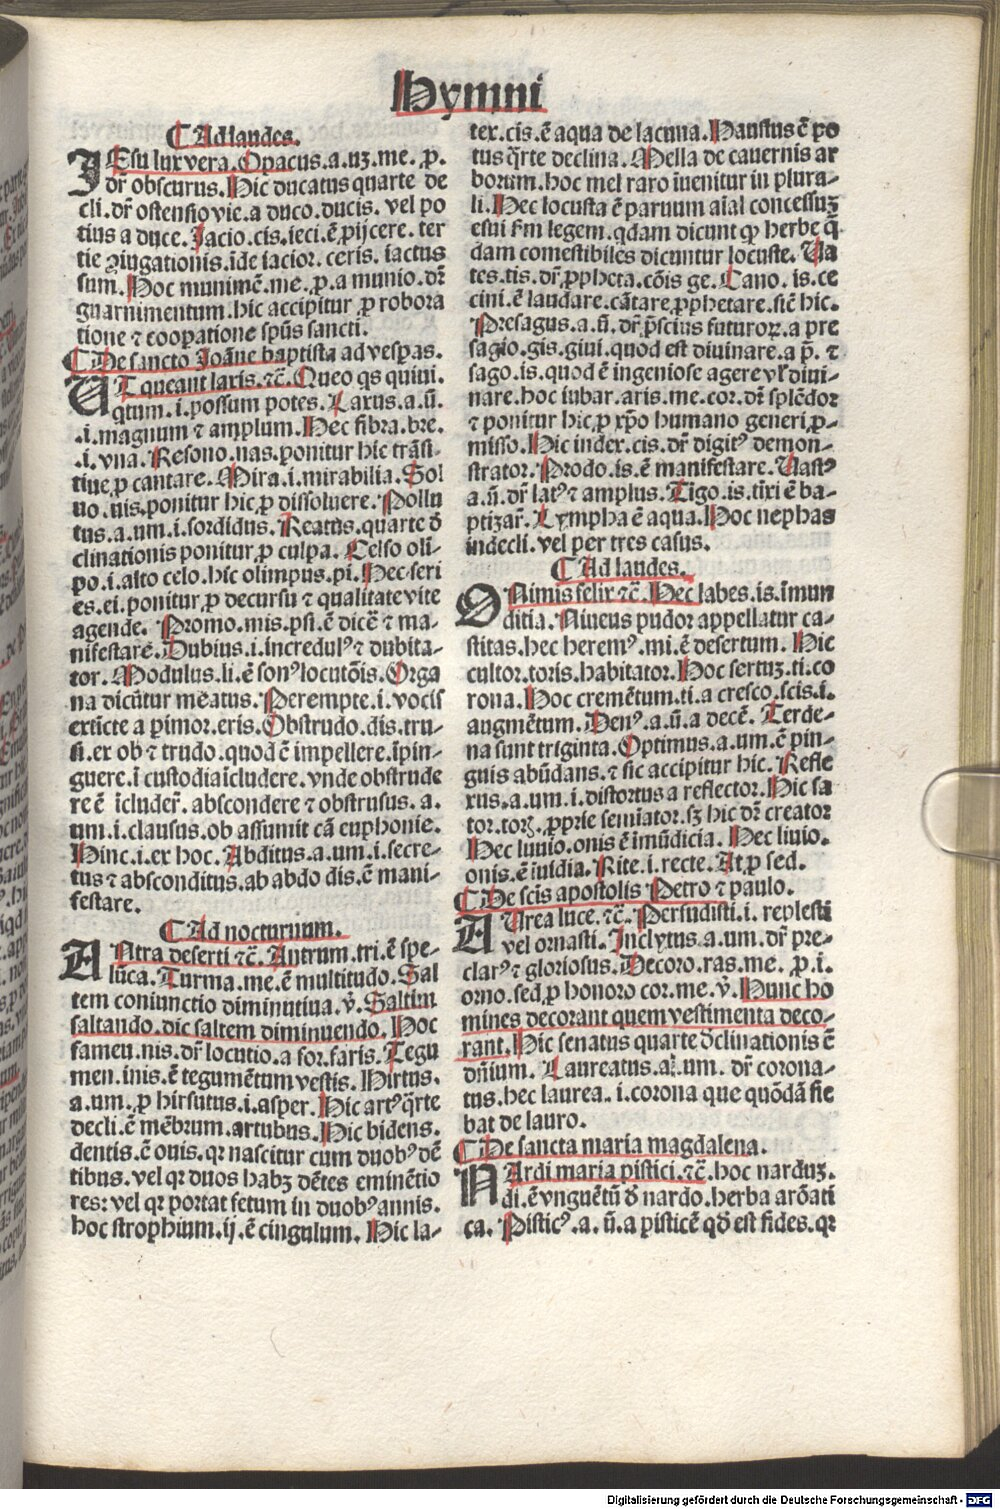 Hymni
¶ Ad laudes.
IEsu lux vera. Opacus.a.uʒ.me. ꝑ.
dr̄ obscurus. Hic ducatus quarte de
cli. dr̄ ostensio vie.a duco.ducis. vel po
tius a duce. Jacio.cis.ieci.ē ꝓijcere. ter
tie ꝯiugationis.īde iacior. ceris. iactus
sum. Hoc munimē.me.ꝓ.a munio.dr̄
guarnimentum.hic accipitur ꝓ robora
tione ⁊ coopatione spūs sancti.
¶ De sancto Joāne baptista ad vesꝑas.
UT queant laxis.⁊c̄. Queo qs quiui.
qtum.i.possum potes. Laxus.a.ū.
.i.magnum ⁊ amplum. Hec fibra.bre.
.i.vna. Resono.nas.ponitur hic trāsi-
tiue ꝓ cantare. Mira.i.mirabilia. Sol
uo.uis.ponitur hic ꝓ dissoluere. Pollu
tus.a.um.i.sordidus. Reatus.quarte d̄
clinationis ponitur ꝓ culpa. Celso oli-
po.i.alto celo.hic olimpus.pi. Hec seri
es.ei.ponitur ꝓ decursu ⁊ qualitate vite
agende. Promo.mis.psi.ē dicē ⁊ ma-
nifestarē. Dubius.i.incredulꝰ ⁊ dubita-
tor. Modulus.li.ē sonꝰ locutōis. Orga
na dicūtur meatus. Perempte.i.vocis
extīcte a pimor.eris. Obstrudo.dis.tru-
si.ex ob ⁊ trudo.quod ē impellere.īpin-
guere.ī custodia īcludere.vnde obstrude
re ē īcluder̄.abscondere ⁊ obstrusus.a.
um.i.clausus.ob assumit cā euphonie.
Hinc.i.ex hoc. Abditus.a.um.i.secre-
tus ⁊ absconditus.ab abdo dis.ē mani-
festare.
¶ Ad nocturnum.
ANtra deserti ⁊c̄. Antrum.tri.ē spe-
lūca. Turma.me.ē multitudo. Sal
tem coniunctio diminutiua.v̄. Saltim
saltando.dic saltem diminuendo. Hoc
famen.nis.dr̄ locutio.a for.faris. Tegu
men.inis.ē tegumētum vestis. Hirtus.
a.um.ꝓ hirsutus.i.asper. Hic artꝰ q̄rte
decli.ē mēbrum.artubus. Hic bidens.
dentis.ē ouis.qr nascitur cum duobꝰ dē
tibus.vel qr duos habʒ dētes eminētio
res:vel qr portat fetum in duobꝰ annis.
hoc strophium.ij.ē cingulum. Hic la-
tex.cis.ē aqua de lacuna. Haustus ē po
tus q̄rte declina. Mella de cauernis ar
borum.hoc mel raro īuenitur in plura-
li. Hec locusta ē paruum aīal concessuʒ
esui fm legem.qdam dicunt ꝙ herbe q̄
dam comestibiles dicuntur locuste. Ua
tes.tis.dr̄ ꝓpheta.cōis ge. Cano.is.ce
cini.ē laudare.cātare ꝓphetare.sic̄ hic.
Presagus.a.ū.dr̄ p̄scius futuroꝝ.a pre
sagio.gis.giui.quod est diuinare.a p̄. ⁊
sago.is.quod ē ingeniose agere vl̄ diui-
nare.hoc iubar.aris.me.cor.dr̄ splēdor
⁊ ponitur hic ꝓ xp̄o humano generi ꝓ-
misso. Hic index.cis.dr̄ digitꝰ demon-
strator. Prodo.is.ē manifestare. Uastꝰ
a.ū.dr̄ latꝰ ⁊ amplus. Tigo.is.tīxi ē ba-
ptizar̄. Lympha ē aqua. Hoc nephas
indecli.vel per tres casus.
¶ Ad laudes.
O Nimis felix ⁊c̄. Hec labes.is.imun
ditia. Niueus pudor appellatur ca-
stitas.hec heremꝰ.mi.ē desertum. Hic
cultor.toris.habitator. Hoc sertuʒ.ti.co
rona. Hoc cremētum.ti.a cresco.scis.i.
augmētum. Denꝰ.a.ū.a decē. Terde-
na sunt triginta. Optimus.a.um.ē pin-
guis abūdans.⁊ sic accipitur hic. Refle
xus.a.um.i.distortus a reflector. Hic sa
tor.torꝫ.ꝓprie semīator.sʒ hic dr̄ creator
Hec luuio.onis ē īmūdicia. Hec liuio.
onis.ē īuidia. Rite.i.recte. At.ꝓ sed.
¶ De scīs apostolis Petro ⁊ paulo.
AUrea luce.⁊c̄. Persudisti.i. replesti
vel ornasti. Inclytus.a.um.dr̄ pre-
clarꝰ ⁊ gloriosus. Decoro.ras.me. ꝓ.i.
orno.sed ꝓ honoro cor.me.v̄. Nunc ho
mines decorant quem vestimenta deco-
rant. Hic senatus quarte d̄clinationis ē
dn̄ium. Laureatus.a.um. dr̄ corona-
tus.hec laurea.i.corona que quōdā fie
bat de lauro.
¶ De sancta maria magdalena.
NArdi maria pistici.⁊c̄.hoc narduʒ.
di.ē vnguētū d̄ nardo.herba arōati
ca. Pisticꝰ.a.ū.a pisticē qd̄ est fides.qr
Digitalisierung gefördert durch die Deutsche Forschungsgemeinschaft - DFG